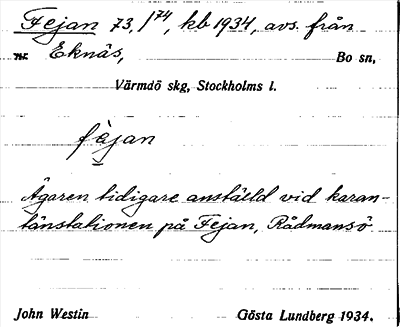 Fejan 73, /74, kb 1934, avs. från
Eknäs, Bo sn,
Värmdö skg, Stockholms l.
fejan
Ägaren tidigare anställd vid karan-
tänstationen på Fejan, Rådmansö
John Westin Gösta Lundberg 1934.